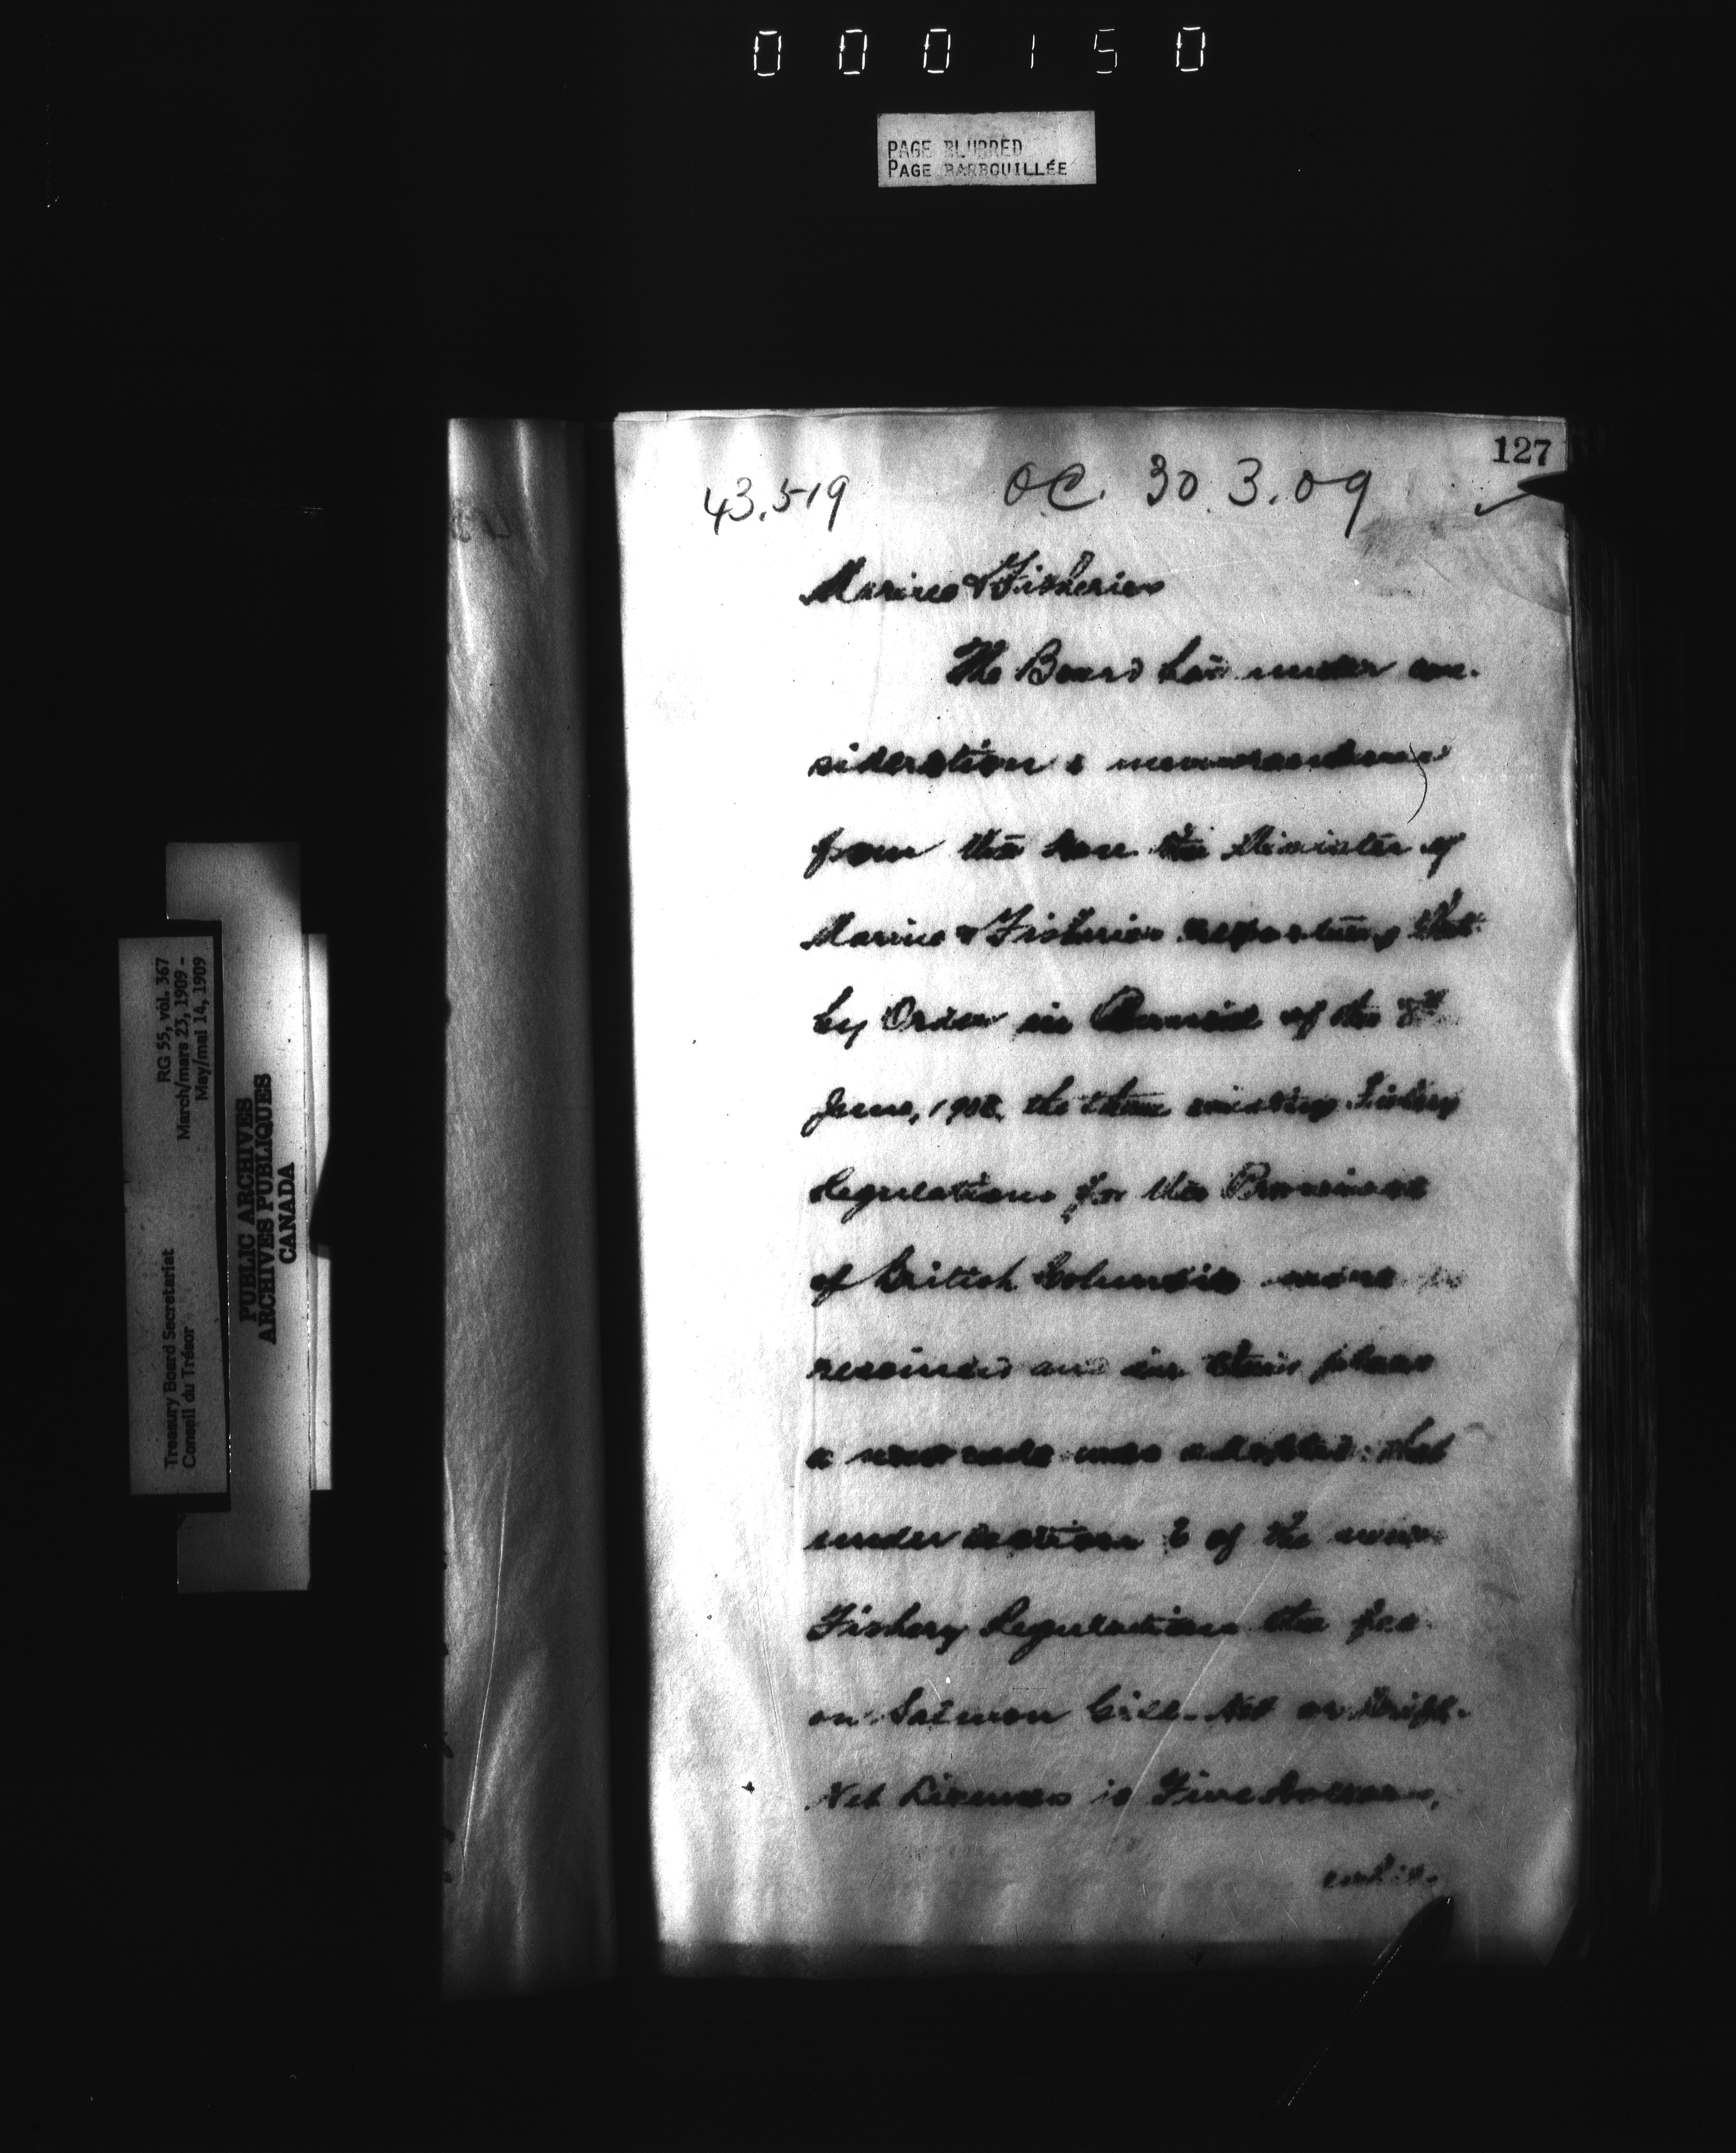 000150
PAGE BLURRED
PAGE BARBOUILLÉE
127
43.519 OC. 30.3.09
Marine & Fisheries
The Board had under con-
sideration a memorandum
from the Hon the Minister of
Marine & Fisheries reporting that
by Order in Council of the 8th
June, 1908, the then existing Fishery
Regulations for the Province
of British Columbia were
rescinded and in their place
a new code was adopted: that
under section 6 of the new
Fishery Regulations the fee
on Salmon Gill-Net or Drift-
Net Licenses is Five dollars,
RG 55, vol. 367
March/mars 23, 1909 -
May/mai 14, 1909
Treasury Board Secretariat
Conseil du Trésor
PUBLIC ARCHIVES
ARCHIVES PUBLIQUES
CANADA